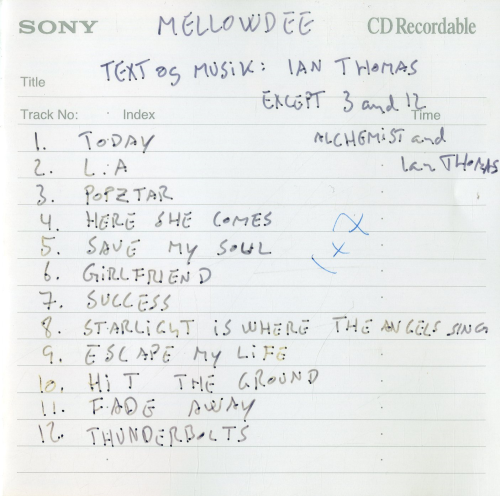 SONY MELLOWDEE CD Recordable
Title TEXT og MUSIK: IAN THOMAS
EXCEPT 3 and 12
Track No: Index Time
ALCHEMIST and
Ian THOMAS
1. TODAY
2. L.A
3. POPZTAR
4. HERE SHE COMES
5. SAVE MY SOUL
6. GIRLFRIEND
7. SUCCESS
8. STARLIGHT IS WHERE THE ANGELS SING
9. ESCAPE MY LIFE
10. HIT THE GROUND
11. FADE AWAY
12. THUNDERBOLTS